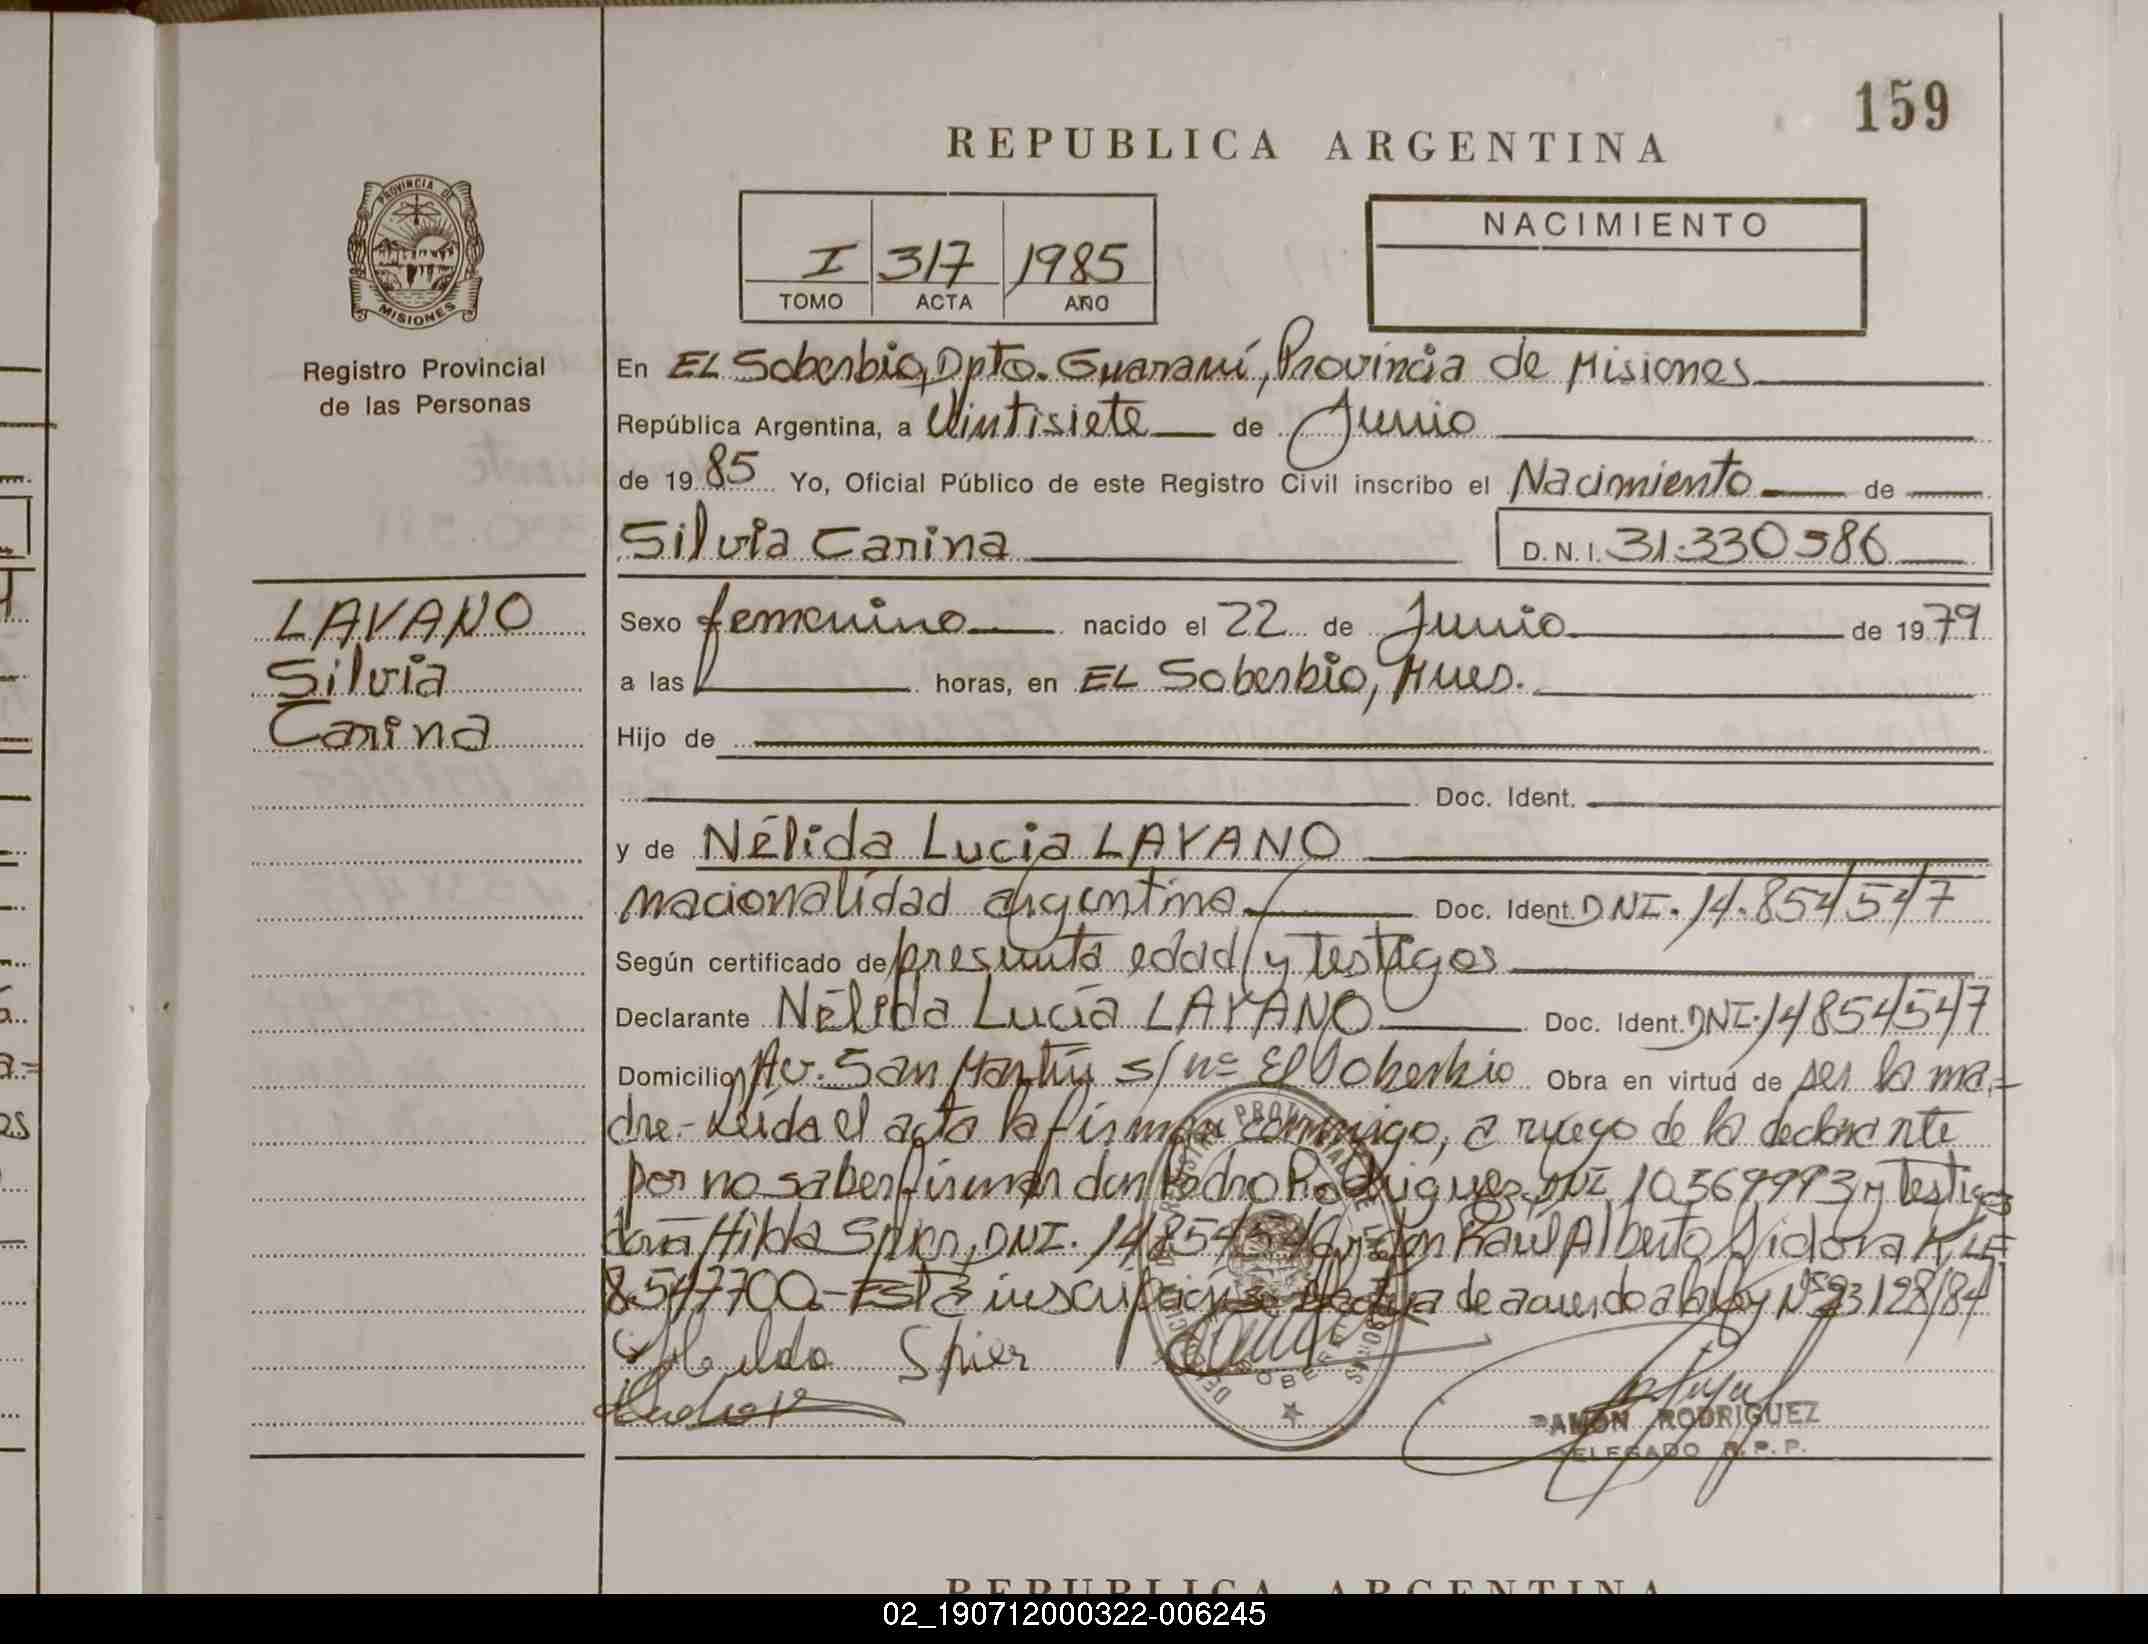 159
REPUBLICA ARGENTINA
PROVINCIA DE
MISIONES
Registro Provincial
de las Personas
I 317 1985
TOMO ACTA AÑO
NACIMIENTO
En EL Soberbio, Dpto. Guaraní, Provincia de Misiones
República Argentina, a Vintisiete de Junio
de 1985 Yo, Oficial Público de este Registro Civil inscribo el Nacimiento de
Silvia Carina D.N.I. 31.330586
LAVANO
Silvia
Carina
Sexo femenino nacido el 22 de Junio de 1979
a las horas, en EL Soberbio, Mnes.
Hijo de
Doc. Ident.
y de Nélida Lucia LAVANO
nacionalidad argentina. Doc. Ident. DNI. 14.854547
Según certificado de presunta edad y testigos
Declarante Nélida Lucía LAVANO Doc. Ident. DNI. 14854547
Domicilio Av. San Martín s/nº El Soberbio Obra en virtud de ser la ma=
dre.- Leída el acta la firman conmigo, a ruego de la declarante
por no saber firmar don Pedro Rodriguez, DNI 10.369993 y testigos
doña Hilda Spier, DNI. 14854546 y don Raúl Alberto Sidora K LE
8.547700.- Esta inscripción se efectua de acuerdo a la ley Nº 23128/84
Spier
RAMON RODRIGUEZ
DELEGADO R.P.P.
REPUBLICA ARGENTINA
02_190712000322-006245